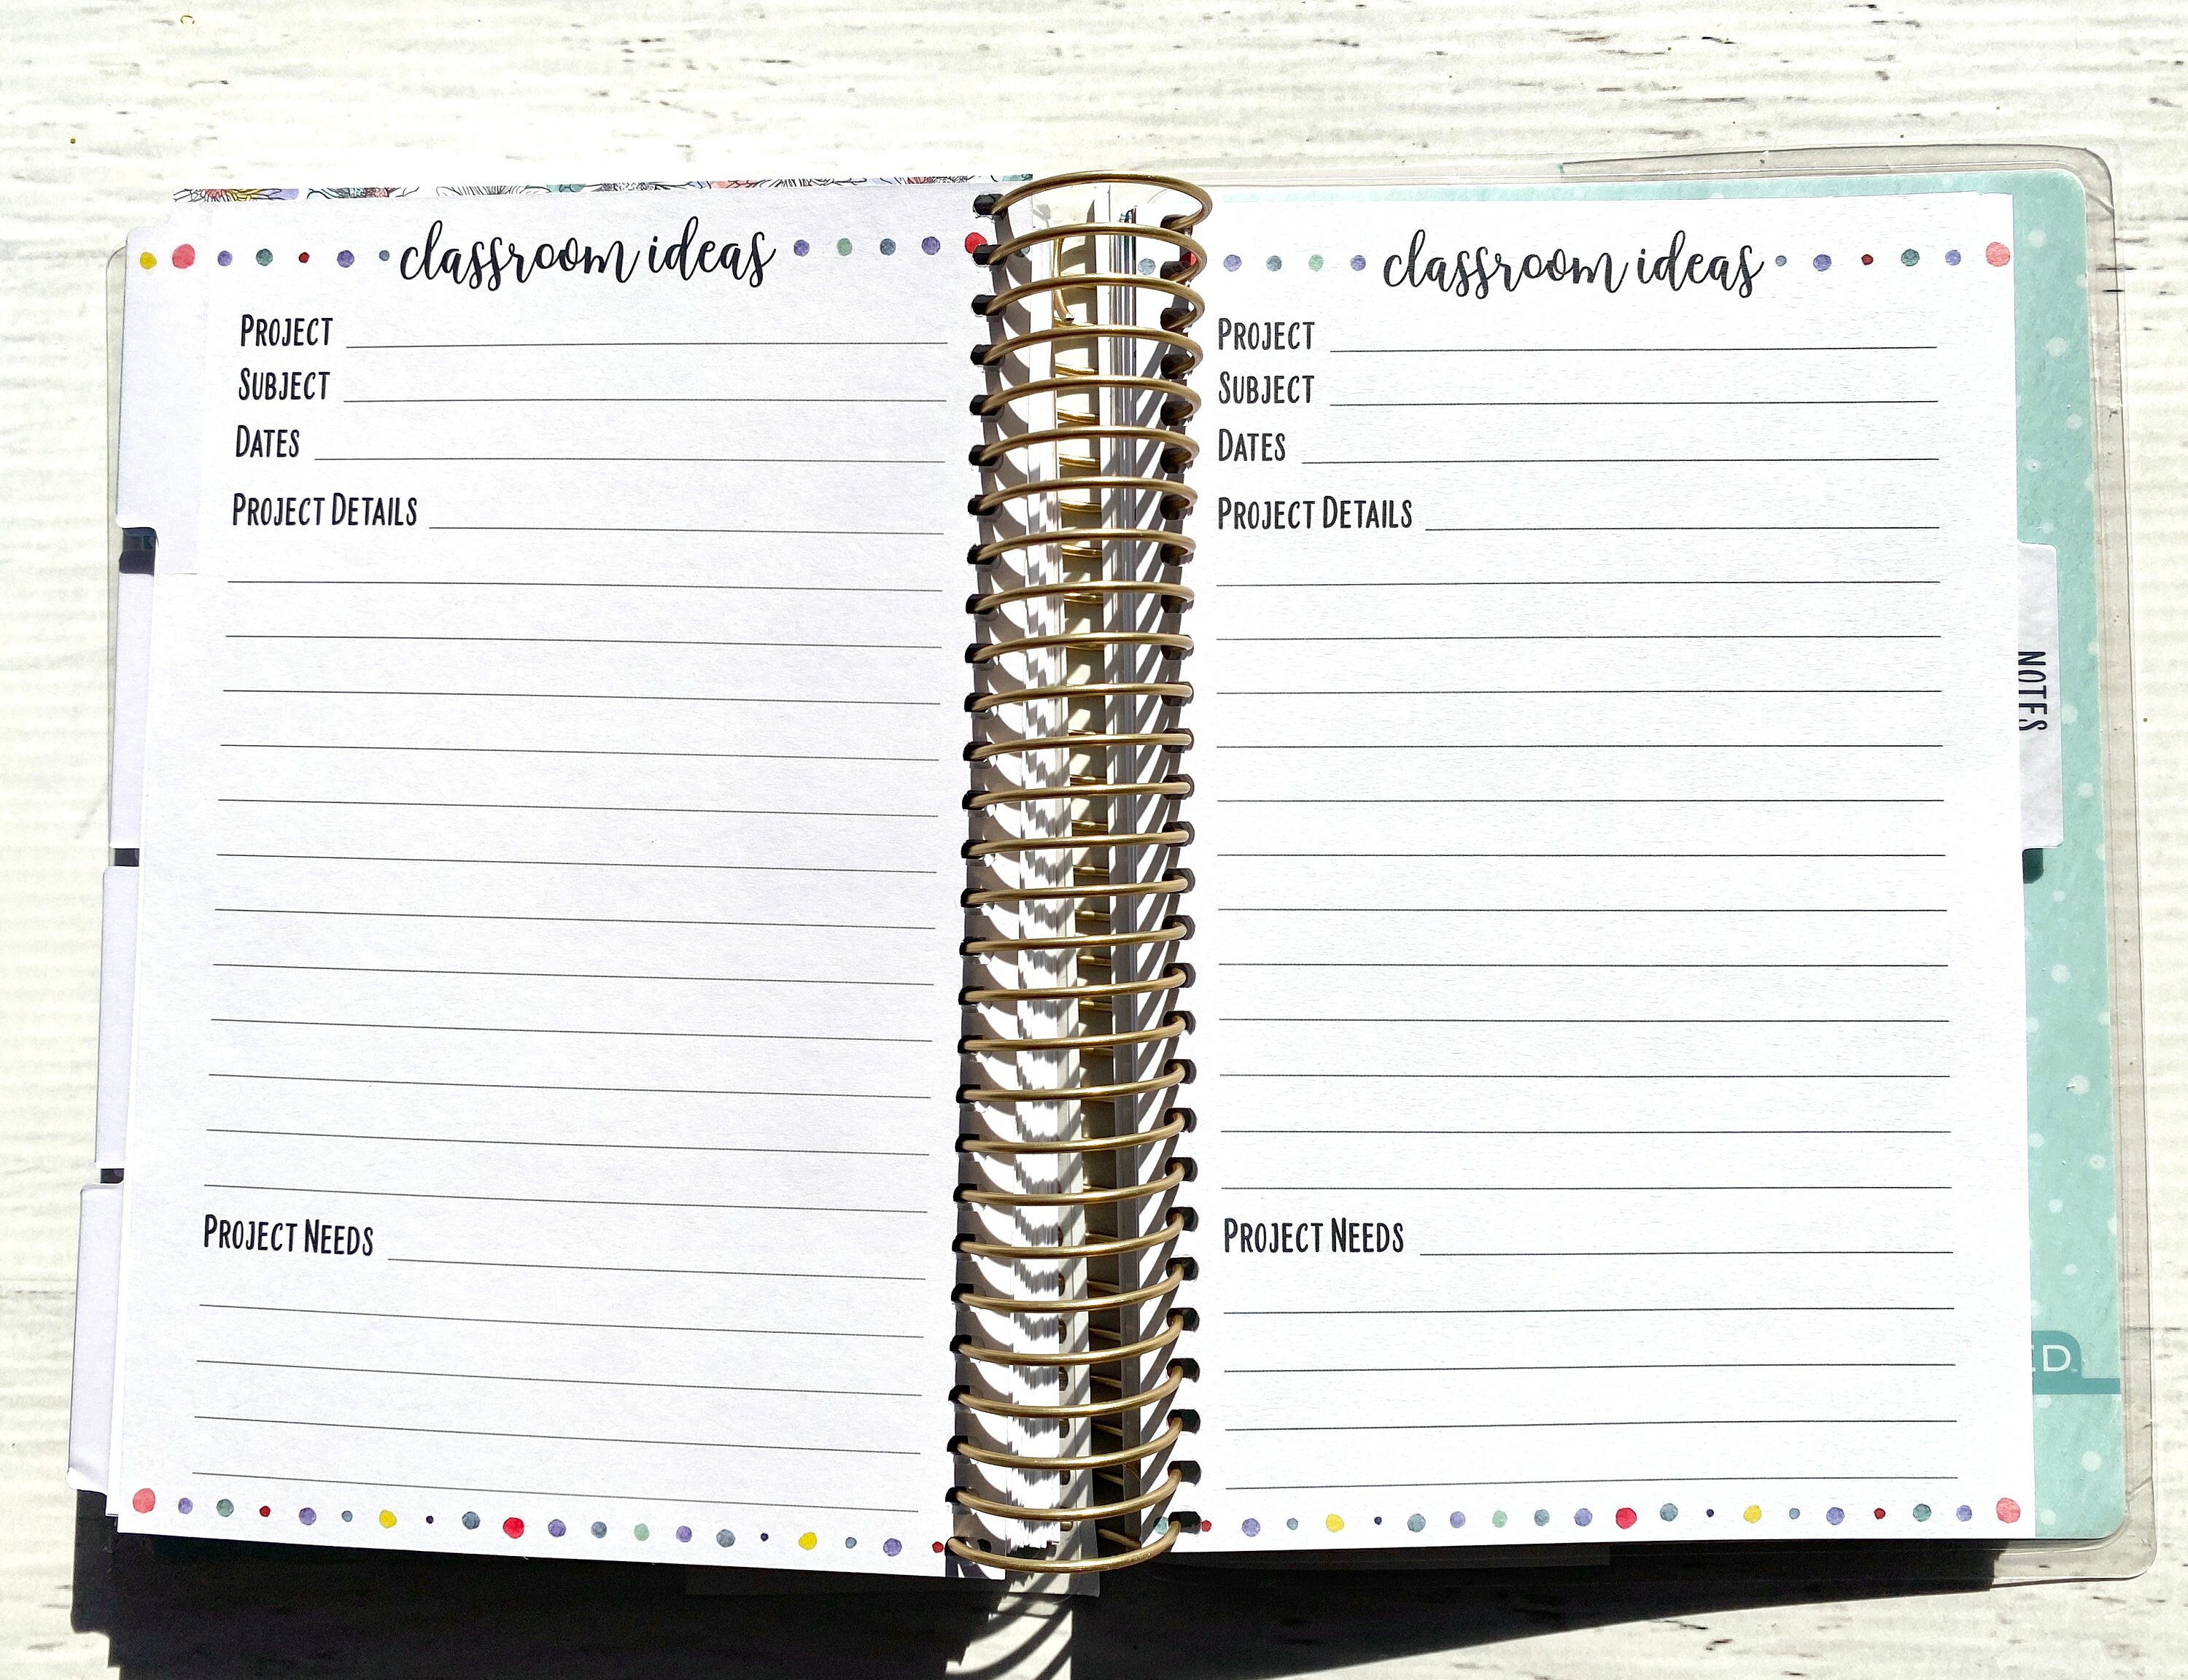 classroom ideas
PROJECT
SUBJECT
DATES
PROJECT DETAILS
PROJECT NEEDS
classroom ideas
PROJECT
SUBJECT
DATES
PROJECT DETAILS
PROJECT NEEDS
NOTES